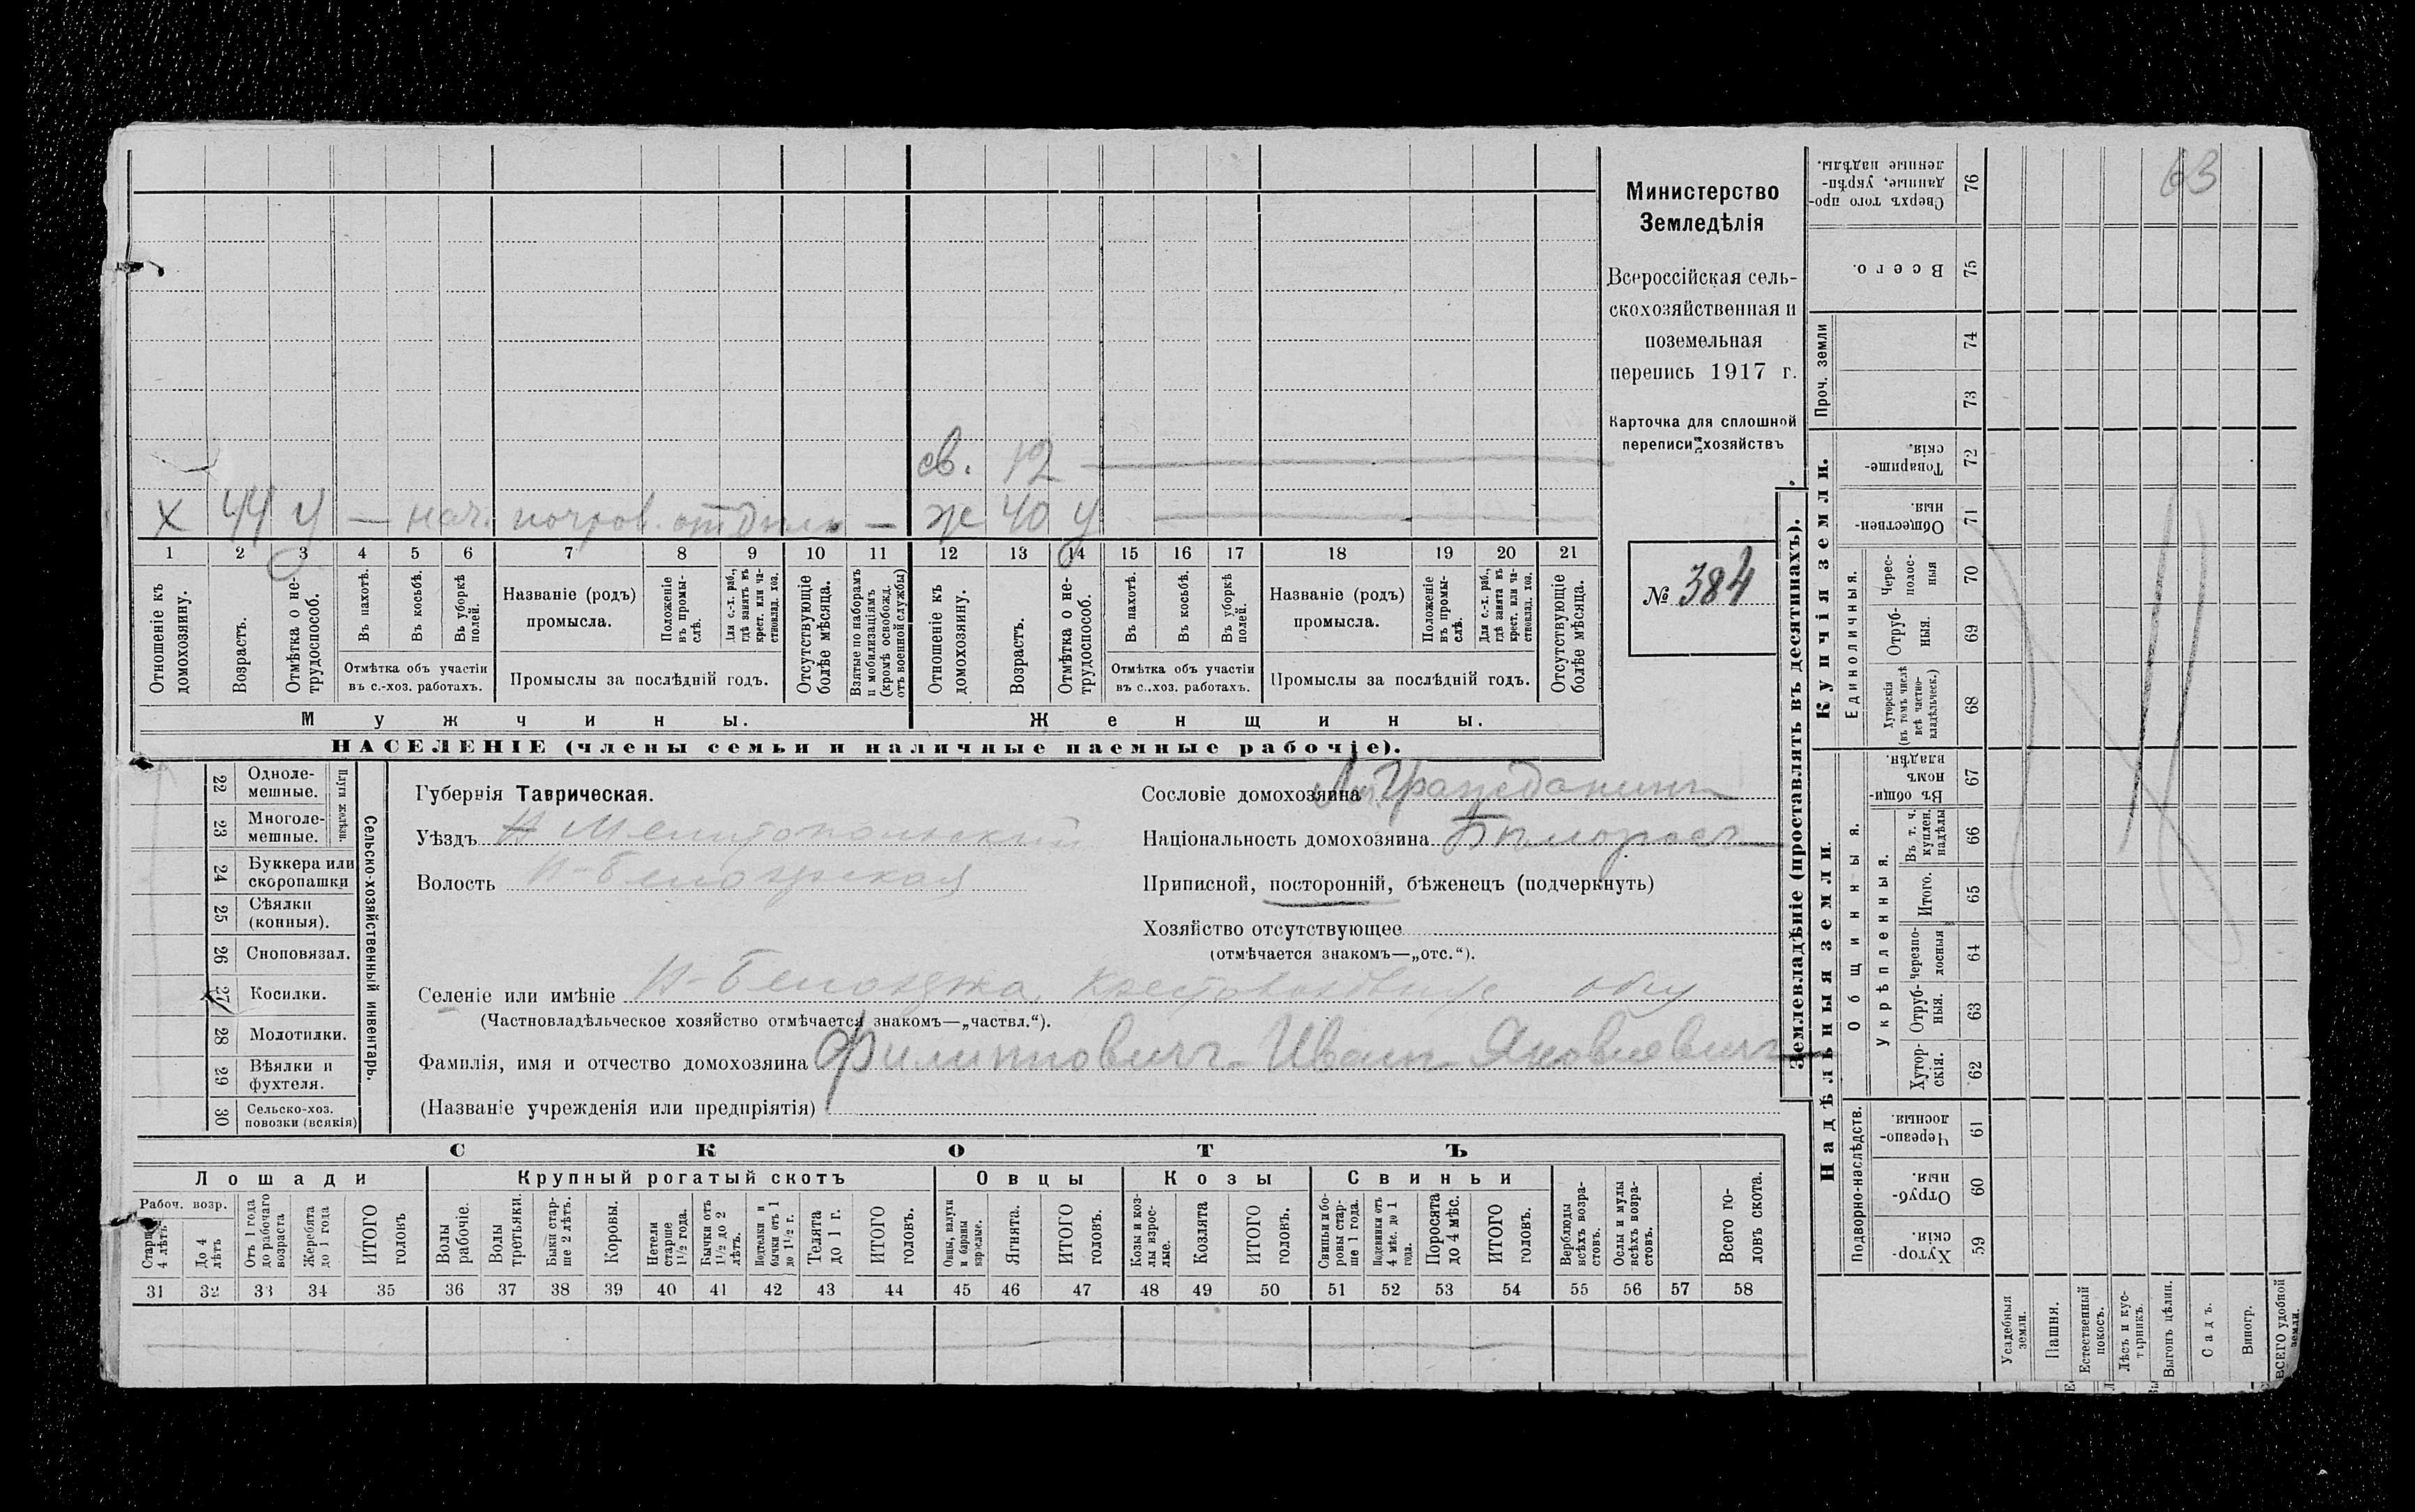 63
Министерство
Земледѣлія
Всероссійская сель-
скохозяйственная и
поземельная
перепись 1917 г.
Карточка для сплошной
переписи хозяйствъ
№ 384
св. 12
х 44 у — нач. почтов. отдѣл. — ж 40 у
1 2 3 4 5 6 7 8 9 10 11 12 13 14 15 16 17 18 19 20 21
Отношеніе къ домохозяину.
Возрастъ.
Отмѣтка о не-трудоспособ.
Въ пахотѣ.
Въ косьбѣ.
Въ уборкѣ полей.
Названіе (родъ) промысла.
Положеніе въ промы-слѣ.
Для с.-х. раб., гдѣ занятъ въ крест. или ча-стновлад. хоз.
Отсутствующіе болѣе мѣсяца.
Взятые по наборамъ и мобилизаціямъ (кромѣ освобожд. отъ военной службы)
Отношеніе къ домохозяину.
Возрастъ.
Отмѣтка о не-трудоспособ.
Въ пахотѣ.
Въ косьбѣ.
Въ уборкѣ полей.
Названіе (родъ) промысла.
Положеніе въ промы-слѣ.
Для с.-х. раб., гдѣ занята въ крест. или ча-стновлад. хоз.
Отсутствующіе болѣе мѣсяца.
Отмѣтка объ участіи въ с.-хоз. работахъ.
Промыслы за послѣдній годъ.
Отмѣтка объ участіи въ с.-хоз. работахъ.
Промыслы за послѣдній годъ.
Мужчины. Женщины.
НАСЕЛЕНІЕ (члены семьи и наличные наемные рабочіе).
Сельско-хозяйственный инвентарь.
Плуги желѣзн.
22 Одноле-мешные.
23 Многоле-мешные.
24 Буккера или скоропашки
25 Сѣялки (конныя).
26 Сноповязал.
27 Косилки.
28 Молотилки.
29 Вѣялки и фухтеля.
30 Сельско-хоз. повозки (всякія)
Губернія Таврическая.
Уѣздъ Мелитопольский
Волость Н-Белозерская
Селеніе или имѣніе Н-Белозерка,
(Частновладѣльческое хозяйство отмѣчается знакомъ—„частвл.“).
Фамилія, имя и отчество домохозяина Филипповичъ Иванъ Яковлевичъ
(Названіе учрежденія или предпріятія)
Сословіе домохозяина Гражданинъ
Національность домохозяина Бѣлороссъ
Приписной, посторонній, бѣженецъ (подчеркнуть)
Хозяйство отсутствующее
(отмѣчается знакомъ—„отс.“).
СКОТЪ
Лошади Крупный рогатый скотъ Овцы Козы Свиньи
Рабоч. возр.
Старше 4 лѣтъ
До 4 лѣтъ
Отъ 1 года до рабочаго возраста
Жеребята до 1 года
ИТОГО головъ
Волы рабочіе.
Волы третьяки.
Быки стар-ше 2 лѣтъ.
Коровы.
Нетели старше 1½ года.
Бычки отъ 1½ до 2 лѣтъ.
Подтелки и бычки отъ 1 до 1½ г.
Телята до 1 г.
ИТОГО головъ.
Овцы, валухи и бараны взрослые.
Ягнята.
ИТОГО головъ.
Козы и коз-лы взрос-лые.
Козлята
ИТОГО головъ.
Свиньи и бо-ровы стар-ше 1 года.
Подсвинки отъ 4 мѣс. до 1 года.
Поросята до 4 мѣс.
ИТОГО головъ.
Верблюды всѣхъ возра-стовъ.
Ослы и мулы всѣхъ возра-стовъ.
Всего го-ловъ скота.
31 32 33 34 35 36 37 38 39 40 41 42 43 44 45 46 47 48 49 50 51 52 53 54 55 56 57 58
Землевладѣніе (проставлять въ десятинахъ).
Купчія земли.
Проч. земли
Единоличныя.
Надѣльныя земли.
Общинныя.
Укрѣпленныя.
Подворно-наслѣдств.
Сверхъ того про-данные, укрѣп-ленные надѣлы. 76
Всего. 75
74
73
Товарище-скія. 72
Обществен-ныя. 71
Черес-полос-ныя 70
Отруб-ныя. 69
Хуторскія (въ томъ числѣ всѣ частно-владѣльческ.) 68
Въ общин-номъ владѣн. 67
Въ т. ч. куплен. надѣлы 66
Итого. 65
Черезпо-лосныя 64
Отруб-ныя. 63
Хутор-скія. 62
Черезпо-лосныя 61
Отруб-ныя. 60
Хутор-скія. 59
Усадебныя земли.
Пашня.
Естественный покосъ.
Лѣсъ и кус-тарникъ.
Выгонъ цѣлин.
Садъ.
Виногр.
ВСЕГО удобной земли.